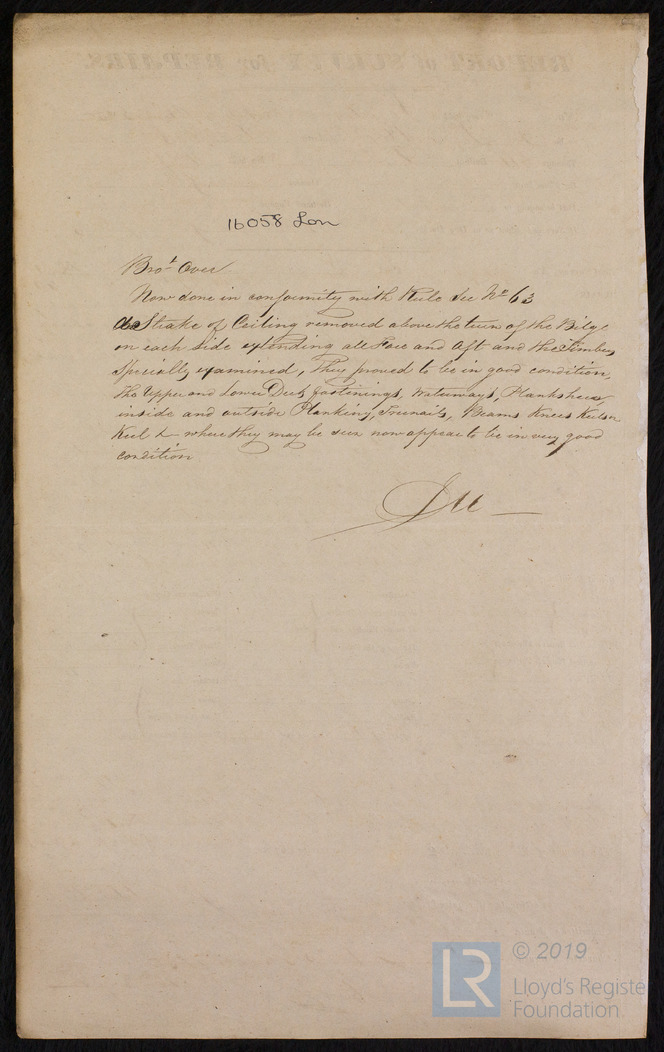 16058 Lon
Brot Over
Now done in conformity with Rule Sec No 63
a Strake of Ceiling removed above the turn of the Bilge
on each side extending all Fore and Aft and the Timbers
specially examined, they proved to be in good condition,
the Upper and Lower Deck fastenings, Waterways, Planksheers
inside and outside Planking, Treenails, Beams Knees Keelson
Keel & where they may be seen now appear to be in very good
condition
LR
© 2019
Lloyd's Registe
Foundation